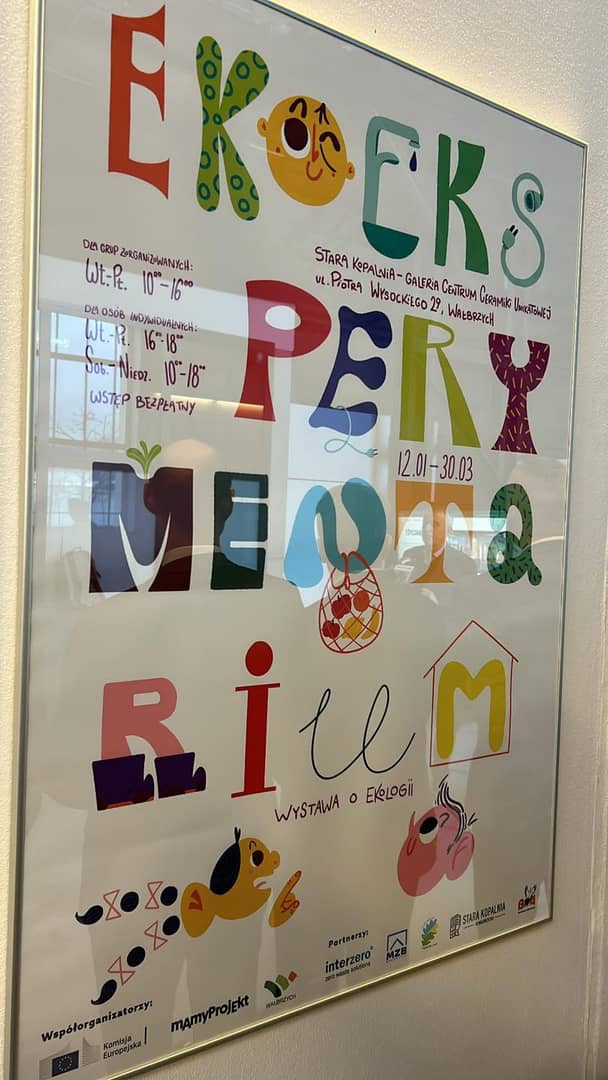 EKOEKS
DLA GRUP ZORGANIZOWANYCH:
WT.-PT. 10⁰⁰-16⁰⁰
DLA OSÓB INDYWIDUALNYCH:
WT.-PT. 16⁰⁰-18⁰⁰
SOB.-NIEDZ. 10⁰⁰-18⁰⁰
WSTĘP BEZPŁATNY
STARA KOPALNIA - GALERIA CENTRUM CERAMIKI UNIKATOWEJ
UL. PIOTRA WYSOCKIEGO 29, WAŁBRZYCH
PERY
12.01-30.03
MENTA
RiUM
WYSTAWA O EKOLOGII
Współorganizatorzy:
Komisja
Europejska
mAmyProjekt
WAŁBRZYCH
Partnerzy:
interzero
zero waste solutions
MZB
STARA KOPALNIA